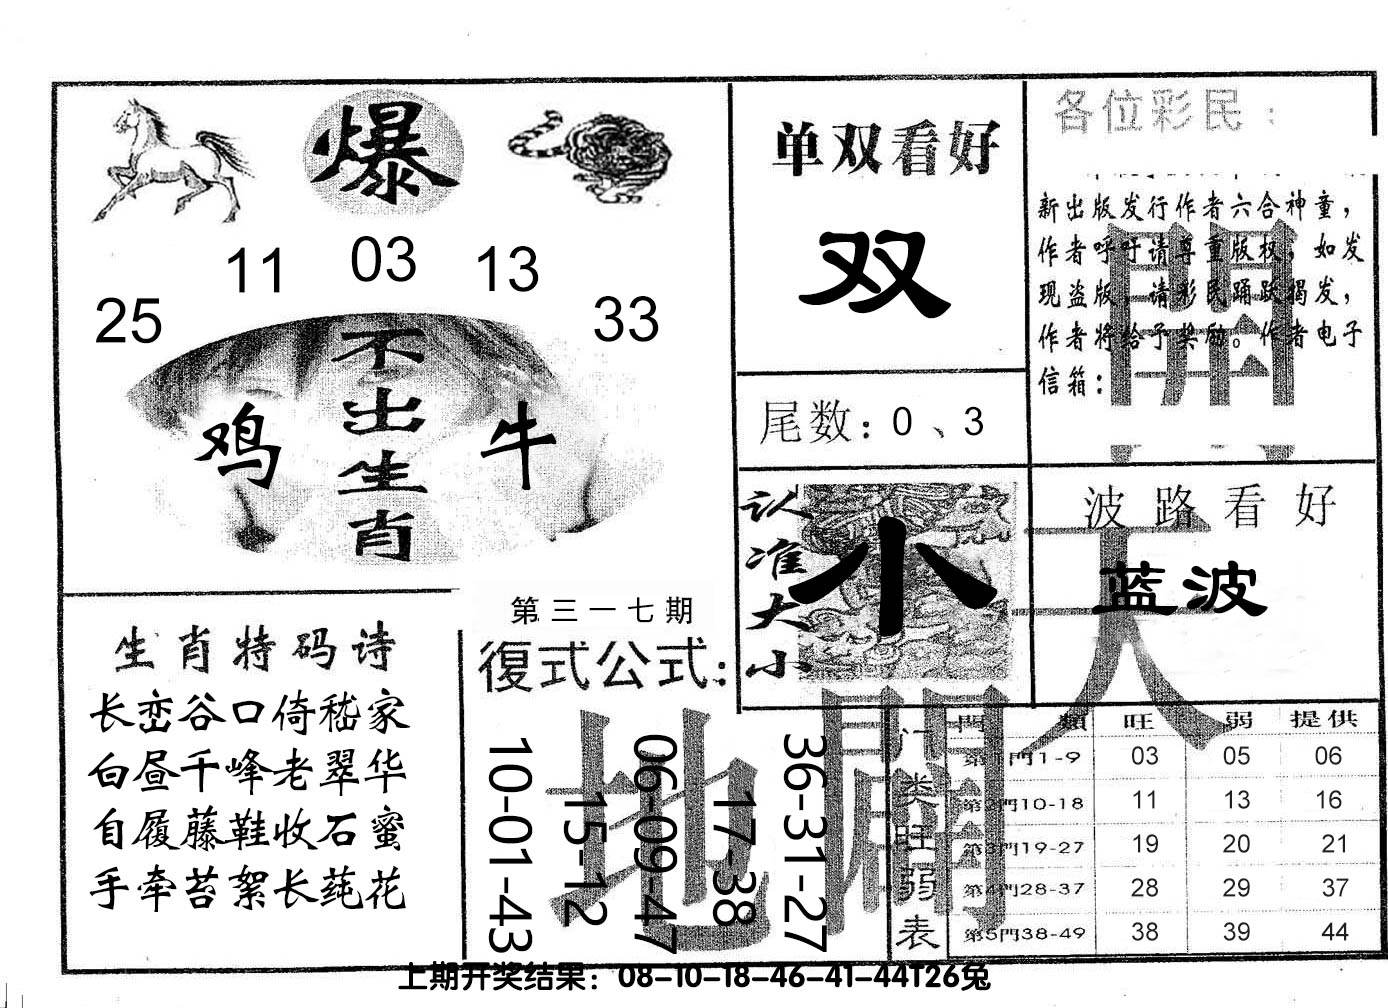 爆
11 03 13
25 33
不出生肖
鸡 牛
单双看好
双
尾数：0、3
各位彩民：
新出版发行作者六合神童，
作者呼吁请尊重版权，如发
现盗版，请彩民踊跃揭发，
作者将给予奖励。作者电子
信箱：
認准大小
小
波路看好
蓝波
天
開
生肖特码诗
长峦谷口倚嵇家
白昼千峰老翠华
自履藤鞋收石蜜
手牵苔絮长莼花
第三一七期
復式公式：
10-01-43
15-12
06-09-47
17-38
36-31-27
地
開
门类旺弱表
門類 旺 弱 提供
第1門1-9 03 05 06
第2門10-18 11 13 16
第3門19-27 19 20 21
第4門28-37 28 29 37
第5門38-49 38 39 44
上期开奖结果：08-10-18-46-41-44T26兔